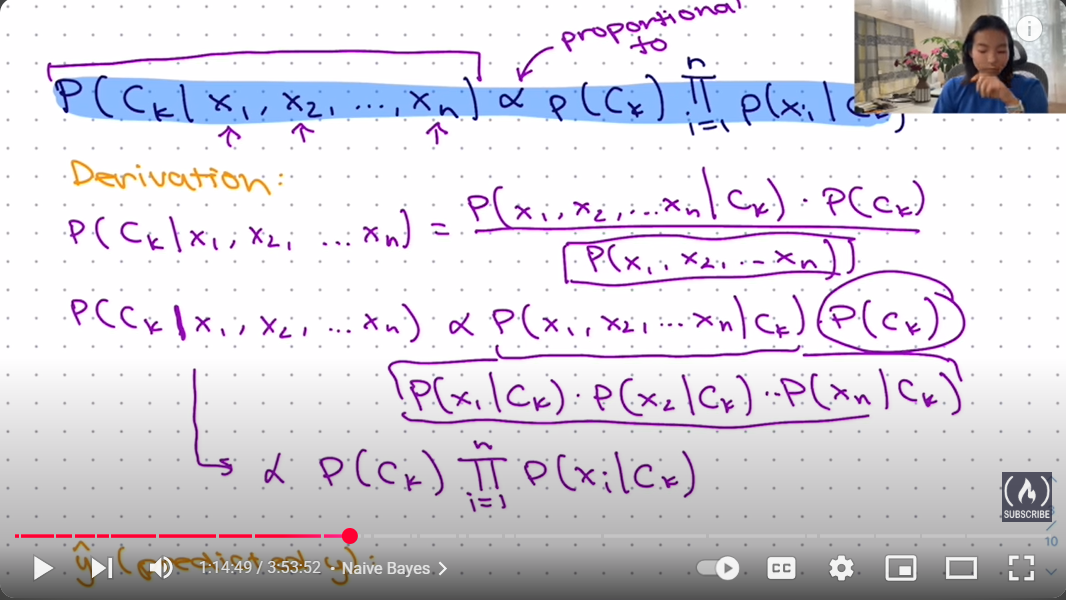 proportional
to
P(Cₖ | x₁, x₂, ..., xₙ) ∝ p(Cₖ) ∏ᵢ₌₁ⁿ p(xᵢ | Cₖ)
Derivation:
P(Cₖ | x₁, x₂, ... xₙ) = P(x₁, x₂, ... xₙ | Cₖ) · P(Cₖ)
P(x₁, x₂, .. xₙ))
P(Cₖ | x₁, x₂, ... xₙ) ∝ P(x₁, x₂, ... xₙ | Cₖ) · P(Cₖ)
P(x₁ | Cₖ) · P(x₂ | Cₖ) ·· P(xₙ | Cₖ)
∝ P(Cₖ) ∏ᵢ₌₁ⁿ P(xᵢ | Cₖ)
SUBSCRIBE
10
ŷ (predicted y):
1:14:49 / 3:53:52 • Naive Bayes
CC